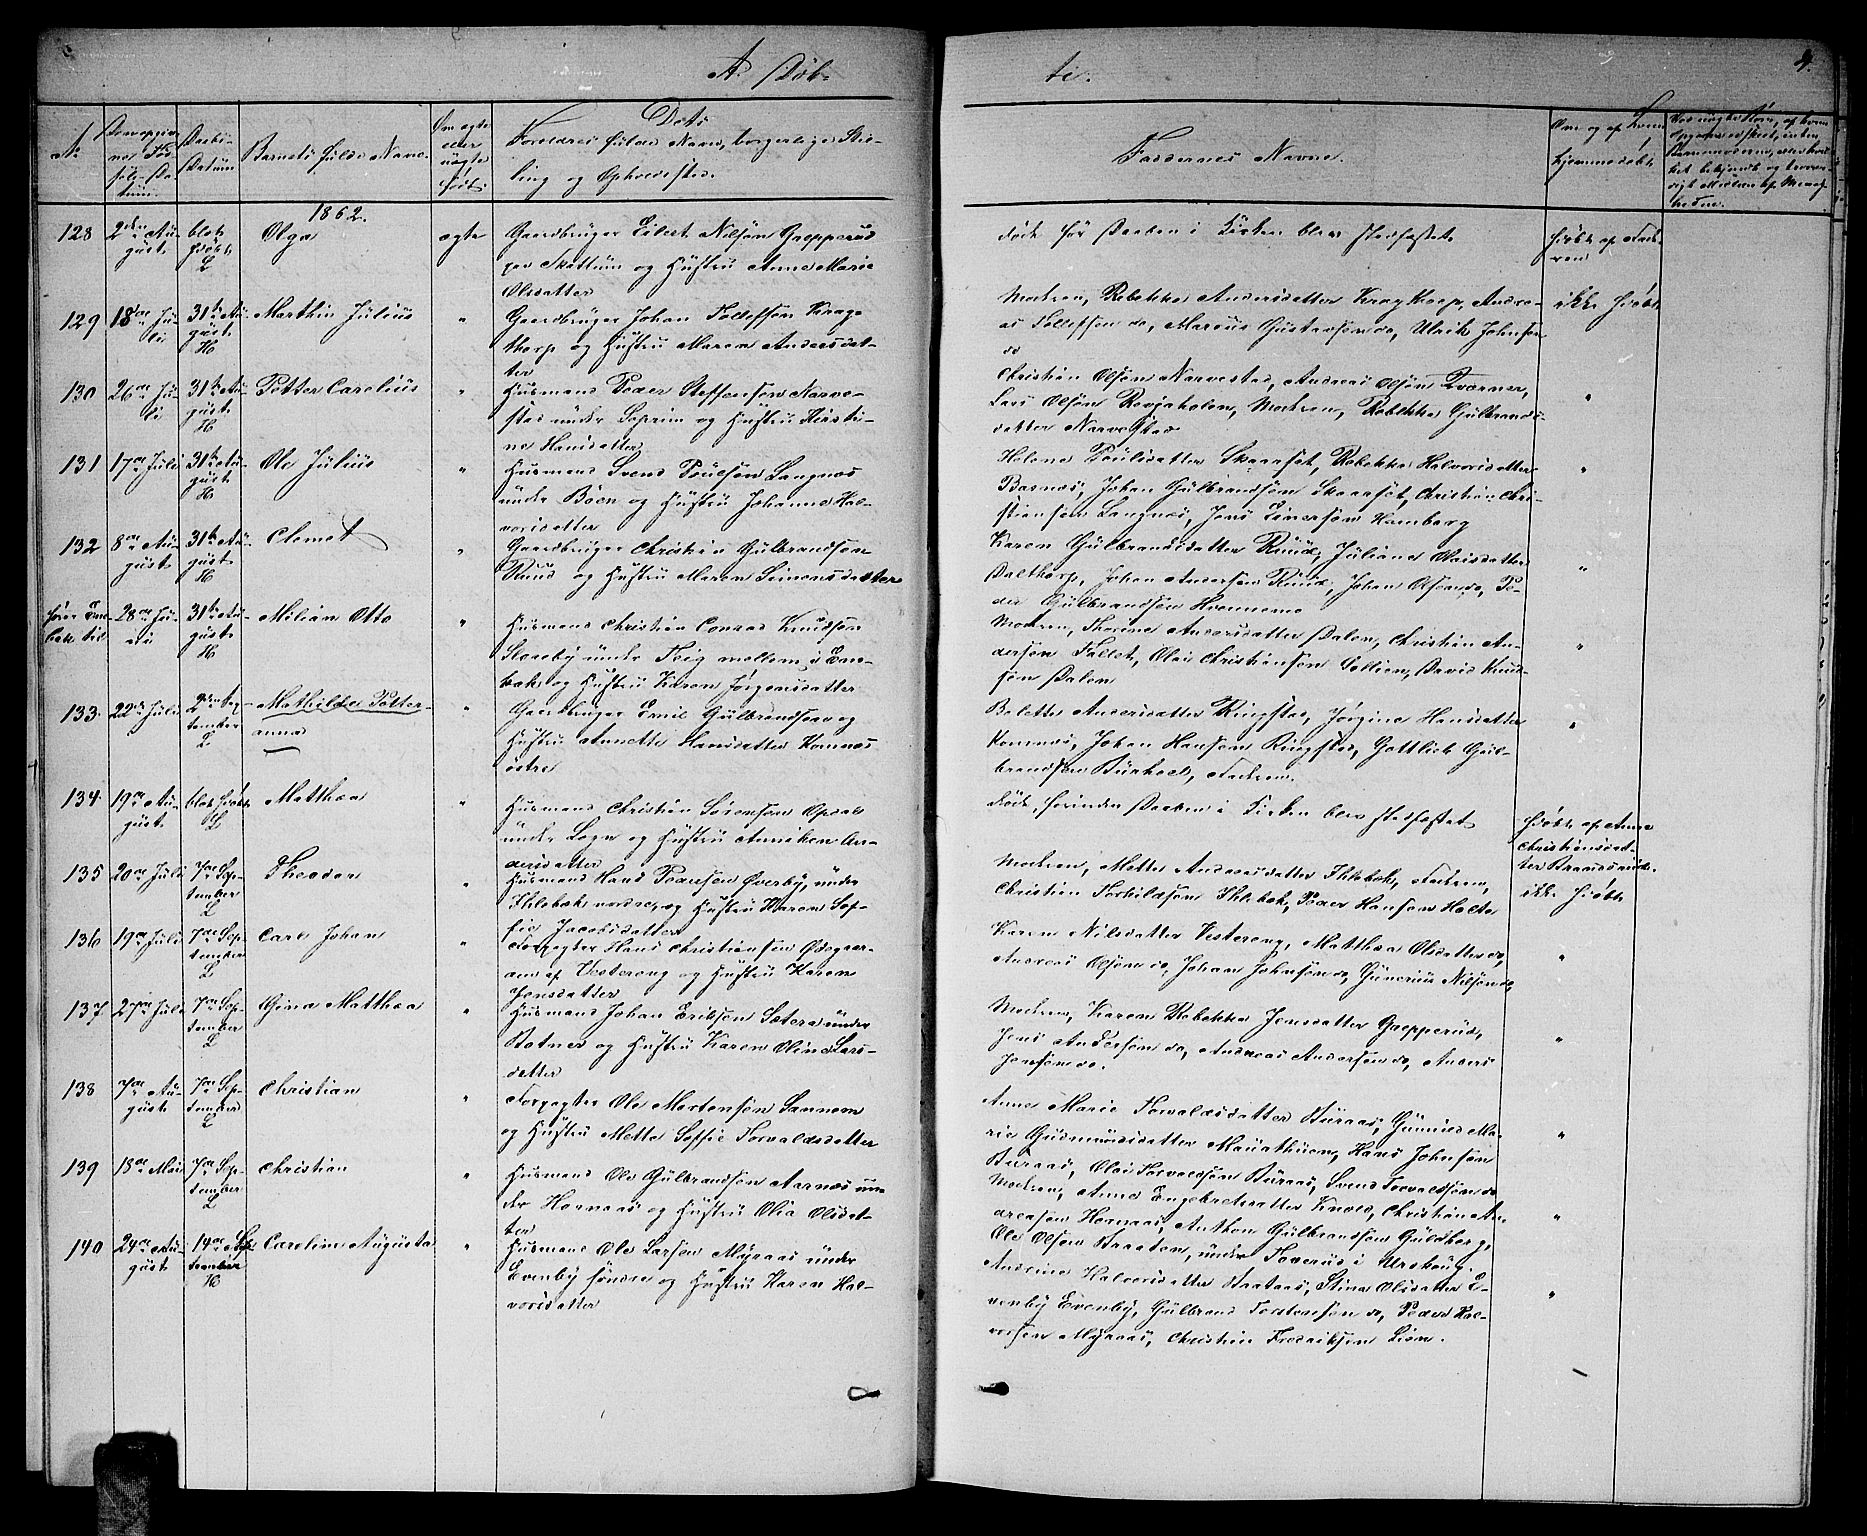 A. Døb-
ti.
4.
No
Den opgiv-
ne Fød-
sels-Da-
tum.
Daabs-
Datum
Barnets fulde Navn.
Om ægte
eller
uægte
født.
Dets
Forældres fulde Navn, borgerlige Stil-
ling og Opholdssted.
Faddernes Navne.
Om og af hvem
hjemmedøbt.
1862.
128
2den Au-
gust.
blot
hjdøbt
L
Olga
ægte
Gaardbruger Eilert Nilsøn Grepperud
paa Skottum og Hustru Anne Marie
Olsdatter
døde før Daaben i Kirken blev stadfæstet
hjdøbt af Fade-
ren
129
18de Ju-
li
31te Au-
gust.
H
Marthin Julius
"
Gaardbruger Johan Tollefsøn Krage-
thorp og Hustru Maren Andersdat-
ter
Modren, Rebekka Andersdatter Kragthorp, Andre-
as Tollefsøn do, Marcus Gustavsøn do, Ulrik Johnsøn
do
ikke hjdøbt
130
26de Ju-
li
31te Au-
gust.
H
Petter Carelius
"
Husmand Peder Steffensøn Narve-
stad under Soprim og Hustru Kirsti-
ne Hansdatter
Christian Olsøn Narvestad, Andreas Olsøn Tværnes,
Lars Olsøn Revjaholen, Modren, Rebekka Gulbrands-
datter Narvestad
"
131
17de Juli
31te Au-
gust
H
Ole Julius
"
Husmand Svend Poulsøn Langnæs
under Böen og Hustru Johanne Hal-
vorsdatter
Helene Poulsdatter Skaarset, Rebekka Halvorsdatter
Basnæs, Johan Gulbrandsøn Skaarset, Christian Chri-
stiansøn Langnæs, Jens Einersøn Homberg
"
132
8de Au-
gust
31te Au-
gust
H
Clemet
"
Gaardbruger Christian Gulbrandsøn
Ruud og Hustru Maren Simensdatter
Karen Gulbrandsdatter Ruud, Juliane Olaisdatter
Dalthorp, Johan Andersøn Ruud, Johan Olsøn do, Pe-
der Gulbrandsøn Hvammemo
"
hører Ene-
bak til
28de Ju-
ni
31te Au-
gust.
H
Milian Otto
"
Husmand Christian Conrad Knudsøn
Slareby under Teig mellem i Ene-
bak og Hustru Karen Jørgensdatter
Modren, Thorine Andersdatter Dalen, Christian An-
dersøn Tallet, Olai Christiansøn Sollien, David Knud-
søn Dalen
"
133
22de Juli
2den Sep-
tember
L
Mathilde Petter-
anna
"
Gaardbruger Emil Gulbrandsøn og
Hustru Annette Hansdatter Komnæs
østre
Bolette Andersdatter Ringstad, Jørgine Hansdatter
Komnæs, Johan Hansøn Ringstad, Gottlieb Gul-
brandsøn Burholt, Fadren.
"
134
19de Au-
gust
blot hjdøbt
L
Matthea
"
Husmand Christian Sørensøn Opsal
under Sogn og Hustru Anniken An-
dersdatter
døde, forinden Daaben i Kirken blev stadfæstet
hjdøbt af Anne
Christiansdat-
ter Braandsrud
135
20de Juli
7de Sep-
tember
L
Theodor
"
Husmand Hans Pedersøn Øverby, under
Ihlebæk nordre, og Hustru Karen Sof-
fie Jacobsdatter
Modren, Mette Andersdatter Ihlebæk, Fadren,
Christian Torkildsøn Ihlebæk, Peder Hansøn Holte
ikke hjdøbt
136
19de Juli
7de Sep-
tember
L
Carl Johan
"
Forpagter Hans Christiansøn Ødegaar-
den af Vestereng og Hustru Karen
Jensdatter
Karen Nilsdatter Vestereng, Matthea Olsdatter do,
Andreas Olsøn do, Johan Johnsøn do, Gunerius Nilsøn do,
"
137
27de Juli
7de Sep-
tember
L
Gina Matthea
"
Husmand Johan Eriksøn Sætera under
Botner og Hustru Karen Oline Lars-
datter
Modren, Karen Rebekka Jensdatter Grepperud,
Jens Andersøn do, Andreas Andersøn do, Anders
Jensøn do.
"
138
7de Au-
gust
7de Sep-
tember
L
Christian
"
Forpagter Ole Mortensøn Sannem
og Hustru Mette Sofie Torvaldsdatter
Anne Marie Torvaldsdatter Buraas, Gunild Ma-
rie Gudmundsdatter Mauathuen, Hans Johnsøn
Buraas, Olai Torvaldsøn Buraas, Svend Torvaldsøn do
"
139
18de Mai
7de Sep-
tember
L
Christian
"
Husmand Ole Gulbrandsøn Aarnæs un-
der Hornaas og Hustru Olia Olsdat-
ter
Modren, Anne Engebretsdatter Knold, Christian An-
dreasøn Hornaas, Anthon Gulbrandsøn Guldborg,
Ole Olsøn Braaten, under Toverud i Urskoug.
"
140
24de Au-
gust
14de Sep-
tember
H
Caroline Augusta
"
Husmand Ole Larsøn Myraas under
Evenby søndre og Hustru Karen Hal-
vorsdatter
Andrine Halvorsdatter Brataas, Stina Olsdatter E-
venby Evenby, Gulbrand Torstensøn do, Peder Hal-
vorsøn Myraas, Christian Fredriksøn Liøn.
"